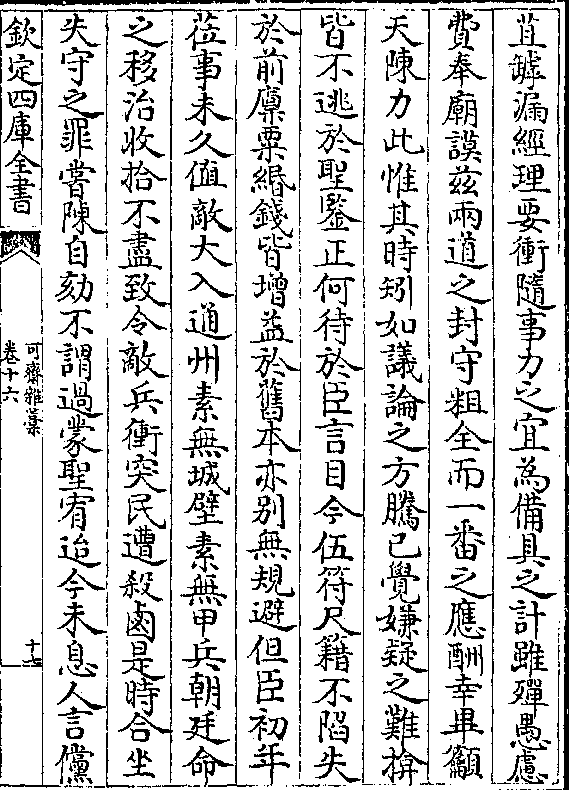 苴罅漏經理要衝隨事力之宜為備具之計雖殫愚慮
費奉廟謨兹兩道之封守粗全而一番之應酬幸畢籲
天陳力此惟其時矧如議論之方騰已覺嫌疑之難揜
皆不逃於聖鑒正何待於臣言目今伍符尺籍不陷失
於前廪粟緡錢皆增益於舊本亦别無規避但臣初年
莅事未久值敵大入通州素無城壁素無甲兵朝廷命
之移治收拾不盡致令敵兵衝突民遭殺鹵是時合坐
失守之罪嘗陳自劾不謂過蒙聖宥迨今未息人言儻
欽定四庫全書
可齋雜藁
卷十六
十七